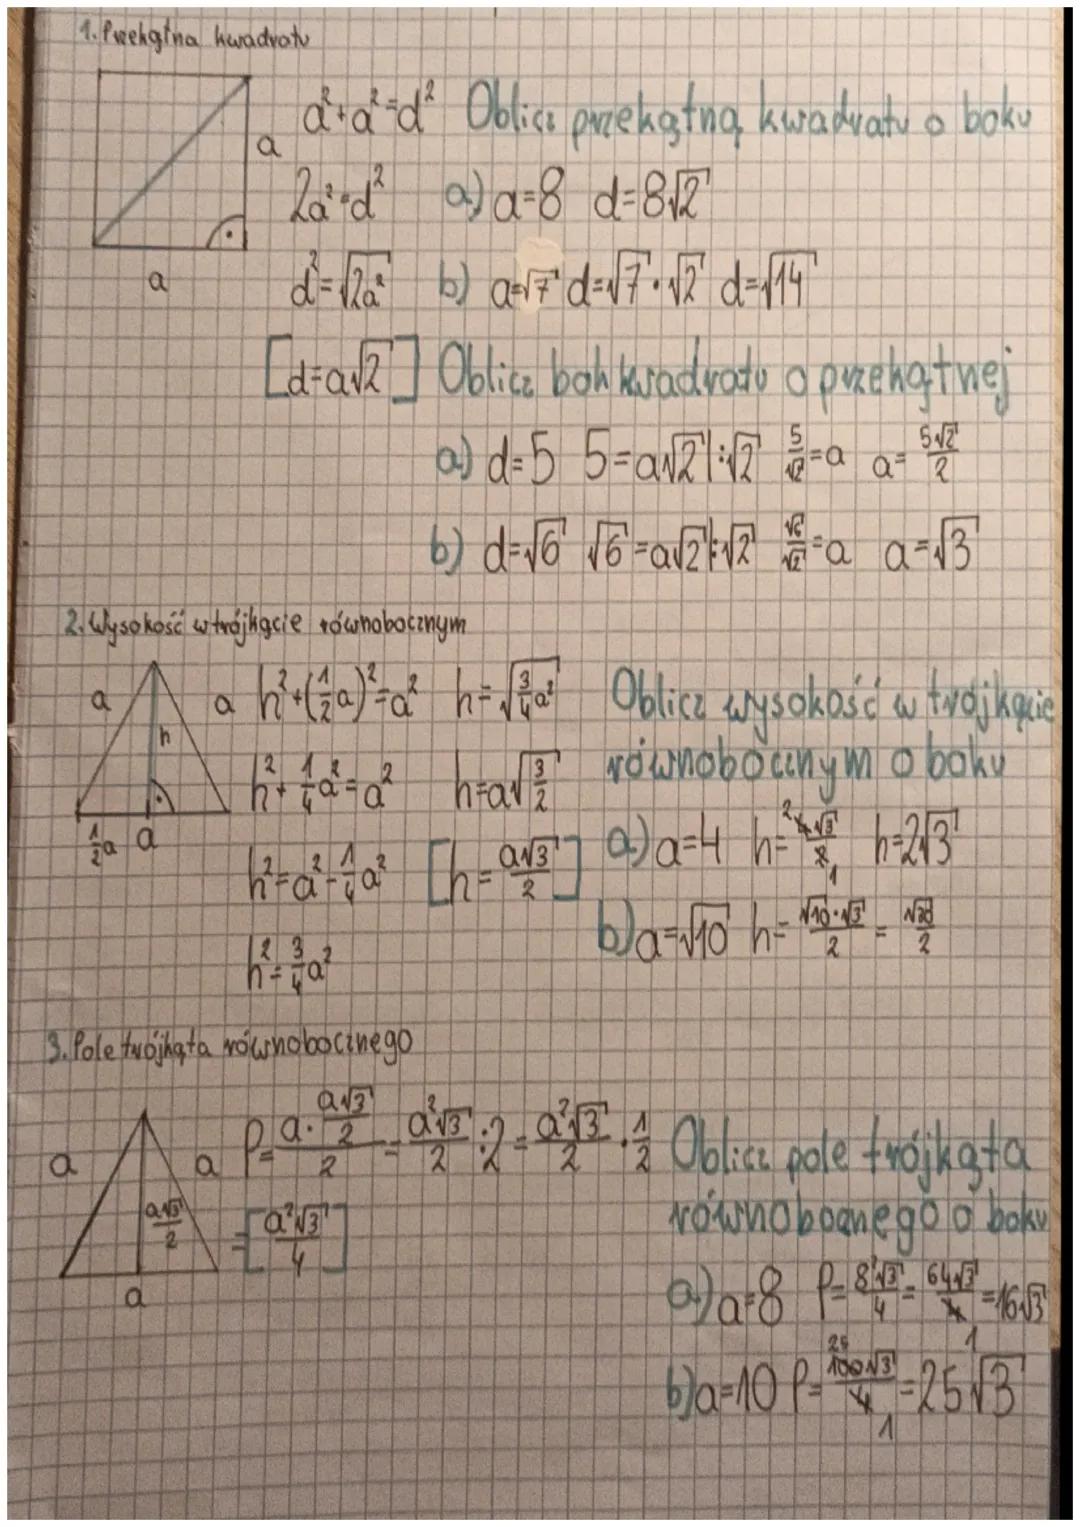 1. Przekątna kwadratu
a² + a² = d²
2a² = d²
d² = √2a²
[d = a√2]
a
a
Oblicz przekątną kwadratu o boku
a) a = 8 d = 8√2
b) a = √7 d = √7 · √2 d = √14
Oblicz bok kwadratu o przekątnej
a) d = 5 5 = a√2 | :√2 5/√2 = a a = 5√2/2
b) d = √6 √6 = a√2 | :√2 √6/√2 = a a = √3
2. Wysokość w trójkącie równobocznym
a
a
h
½a a
h² + (½a)² = a² h = √¾a²
h² + ¼a² = a² h = a√3/2
h² = a² - ¼a² [h = a√3/2]
h² = ¾a²
Oblicz wysokość w trójkącie
równobocznym o boku
a) a = 4 h = ²4√3/2₁ h = 2√3
b) a = √10 h = √10·√3/2 = √30/2
3. Pole trójkąta równobocznego
a
a
a√3/2
a
P = (a · a√3/2)/2 = a²√3/2 : 2 = a²√3/2 · ½
= [a²√3/4]
Oblicz pole trójkąta
równobocznego o boku
a) a = 8 P = 8²√3/4 = 64√3/4 = 16√3
1
b) a = 10 P = ²⁵100√3/4₁ = 25√3